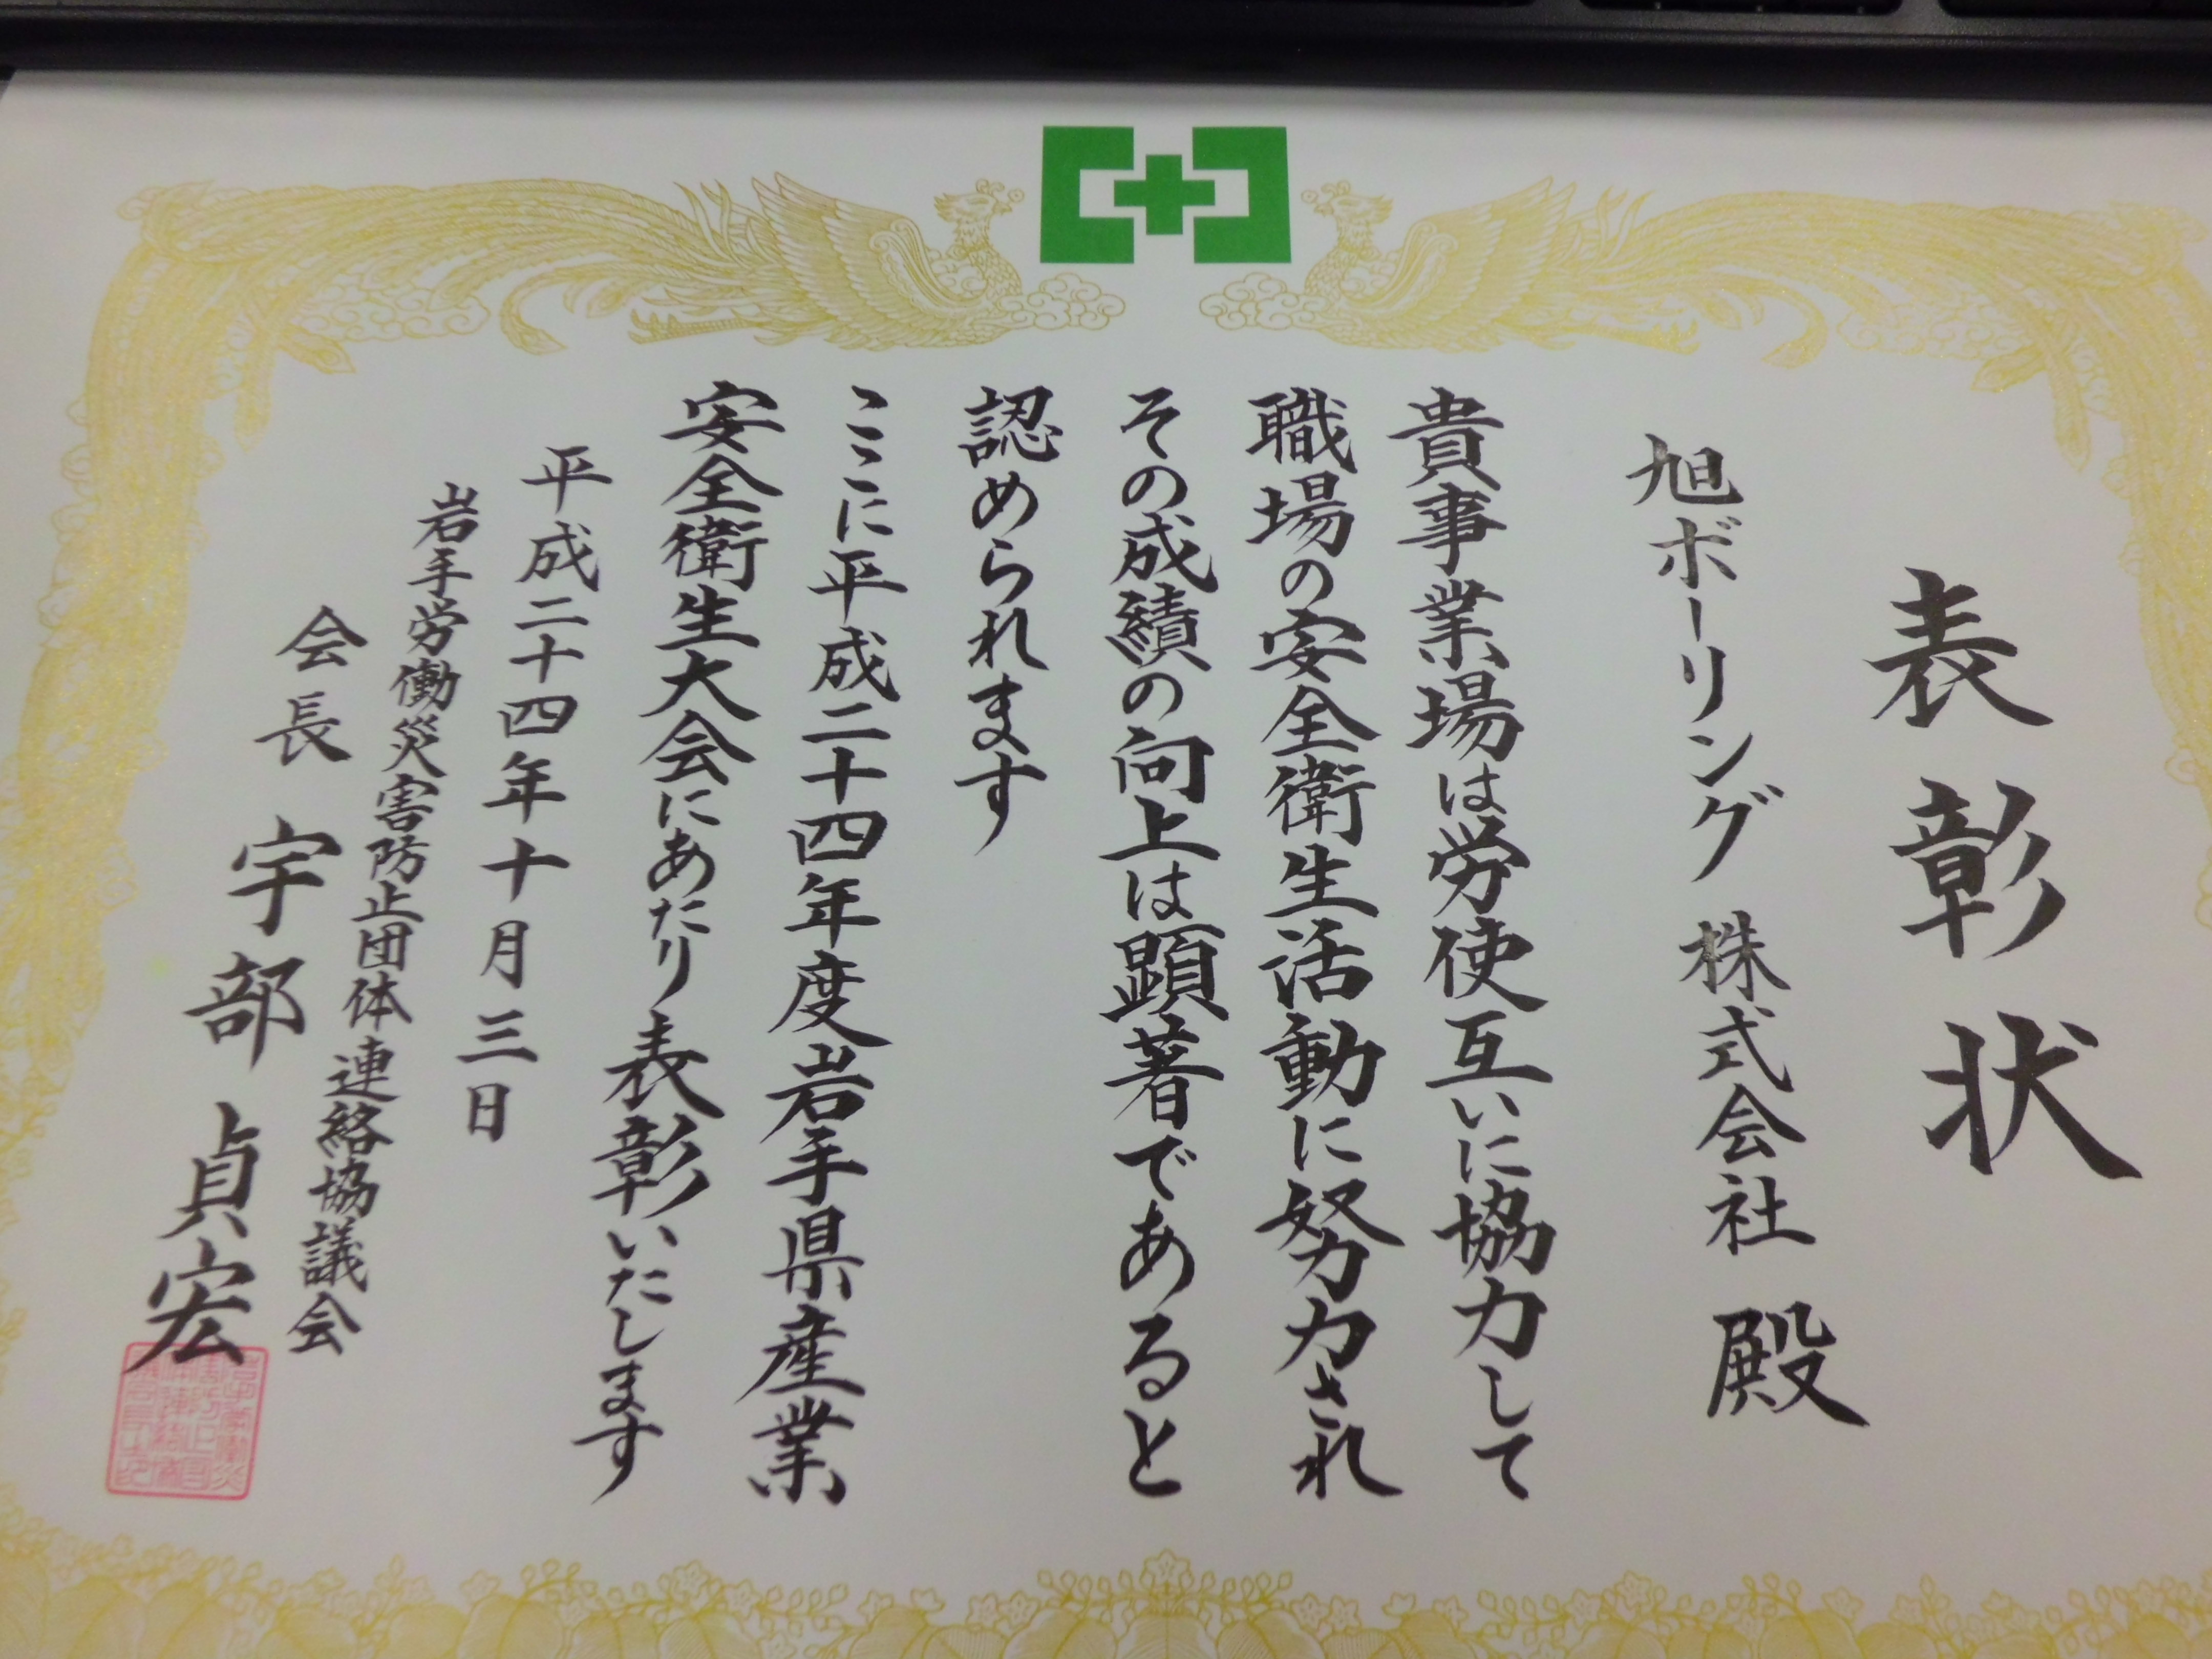 表彰状
旭ボーリング 株式会社 殿
貴事業場は労使互いに協力して
職場の安全衛生活動に努力され
その成績の向上は顕著であると
認められます
ここに平成二十四年度岩手県産業
安全衛生大会にあたり表彰いたします
平成二十四年十月三日
岩手労働災害防止団体連絡協議会
会長 宇部 貞宏